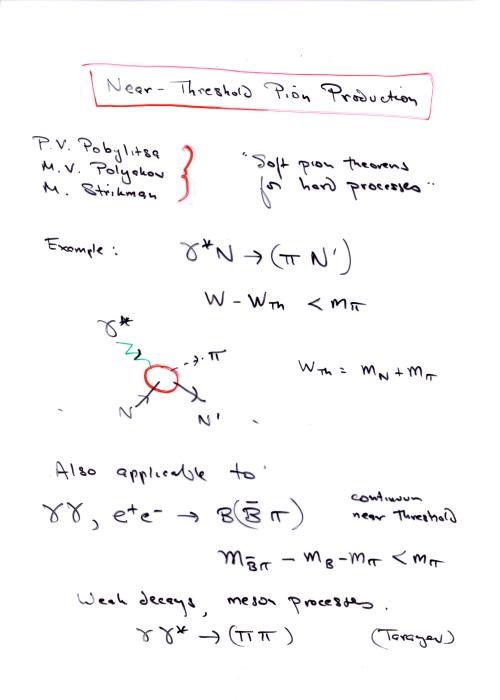 Near-Threshold Pion Production
P.V. Pobylitsa
M.V. Polyakov
M. Strikman
"Soft pion theorems
for hard processes"
Example:
γ*N → (π N')
W - W_Th < m_π
γ*
π
N
N'
W_Th = m_N + m_π
Also applicable to
γγ, e⁺e⁻ → B(B̄ π)
continuum
near threshold
m_B̄π - m_B - m_π < m_π
Weak decays, meson processes.
γγ* → (ππ)